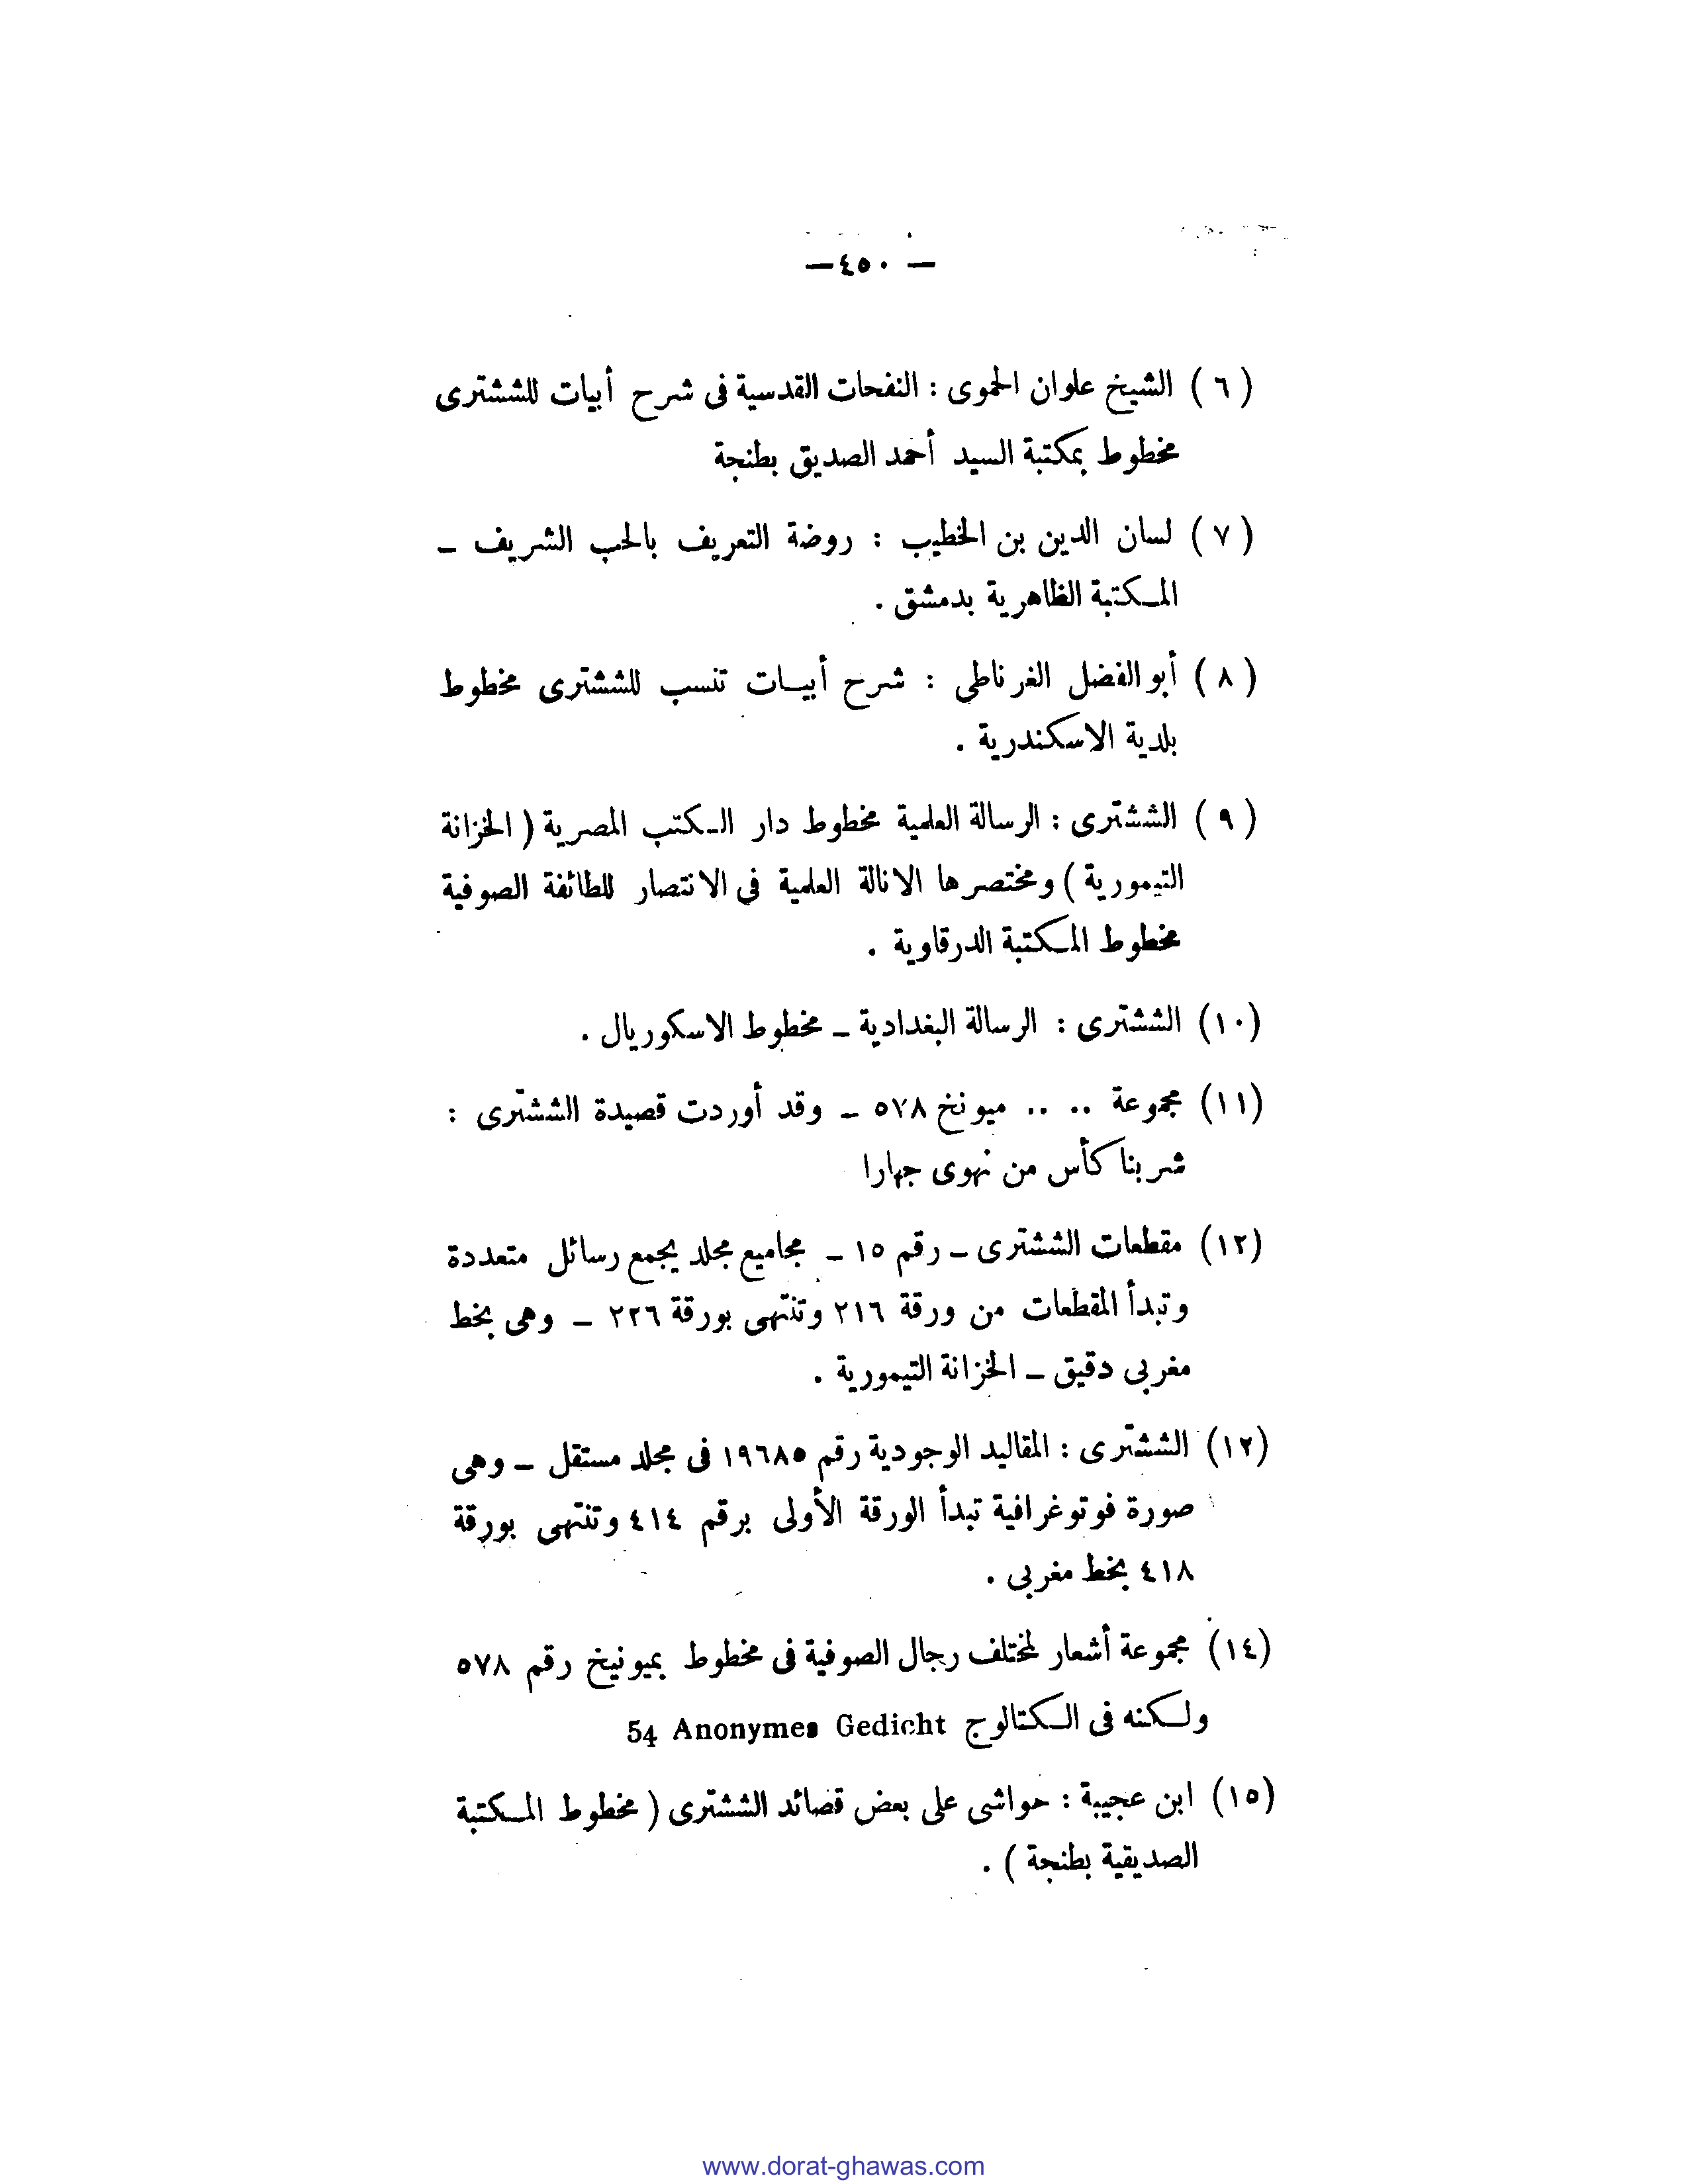 — ٤٥٠ —
( ٦ ) الشيخ علوان الحموى : النفحات القدسية فى شرح أبيات للششترى
مخطوط بمكتبة السيد أحمد الصديق بطنجة
( ٧ ) لسان الدين بن الخطيب : روضة التعريف بالحب الشريف –
المكتبة الظاهرية بدمشق .
( ٨ ) أبو الفضل الغرناطى : شرح أبيات تنسب للششترى مخطوط
بلدية الاسكندرية .
( ٩ ) الششترى : الرسالة العلمية مخطوط دار الكتب المصرية ( الخزانة
التيمورية ) ومختصرها الانالة العلمية فى الانتصار للطائفة الصوفية
مخطوط المكتبة الدرقاوية .
(١٠) الششترى : الرسالة البغدادية – مخطوط الاسكوريال .
(١١) مجموعة .. .. ميونخ ٥٧٨ – وقد أوردت قصيدة الششترى :
شربنا كأس من نهوى جهارا
(١٢) مقطعات الششترى – رقم ١٥ – مجاميع مجلد يجمع رسائل متعددة
وتبدأ المقطعات من ورقة ٢١٦ وتنتهى بورقة ٢٢٦ – وهى بخط
مغربى دقيق – الخزانة التيمورية .
(١٢) الششترى : المقاليد الوجودية رقم ١٩٦٨٥ فى مجلد مستقل – وهى
صورة فوتوغرافية تبدأ الورقة الأولى برقم ٤١٤ وتنتهى بورقة
٤١٨ بخط مغربى .
(١٤) مجموعة أشعار لمختلف رجال الصوفية فى مخطوط بميونيخ رقم ٥٧٨
ولكنه فى الكتالوج 54 Anonymes Gedicht
(١٥) ابن عجيبة : حواشى على بعض قصائد الششترى ( مخطوط المكتبة
الصديقية بطنجة ) .
www.dorat-ghawas.com